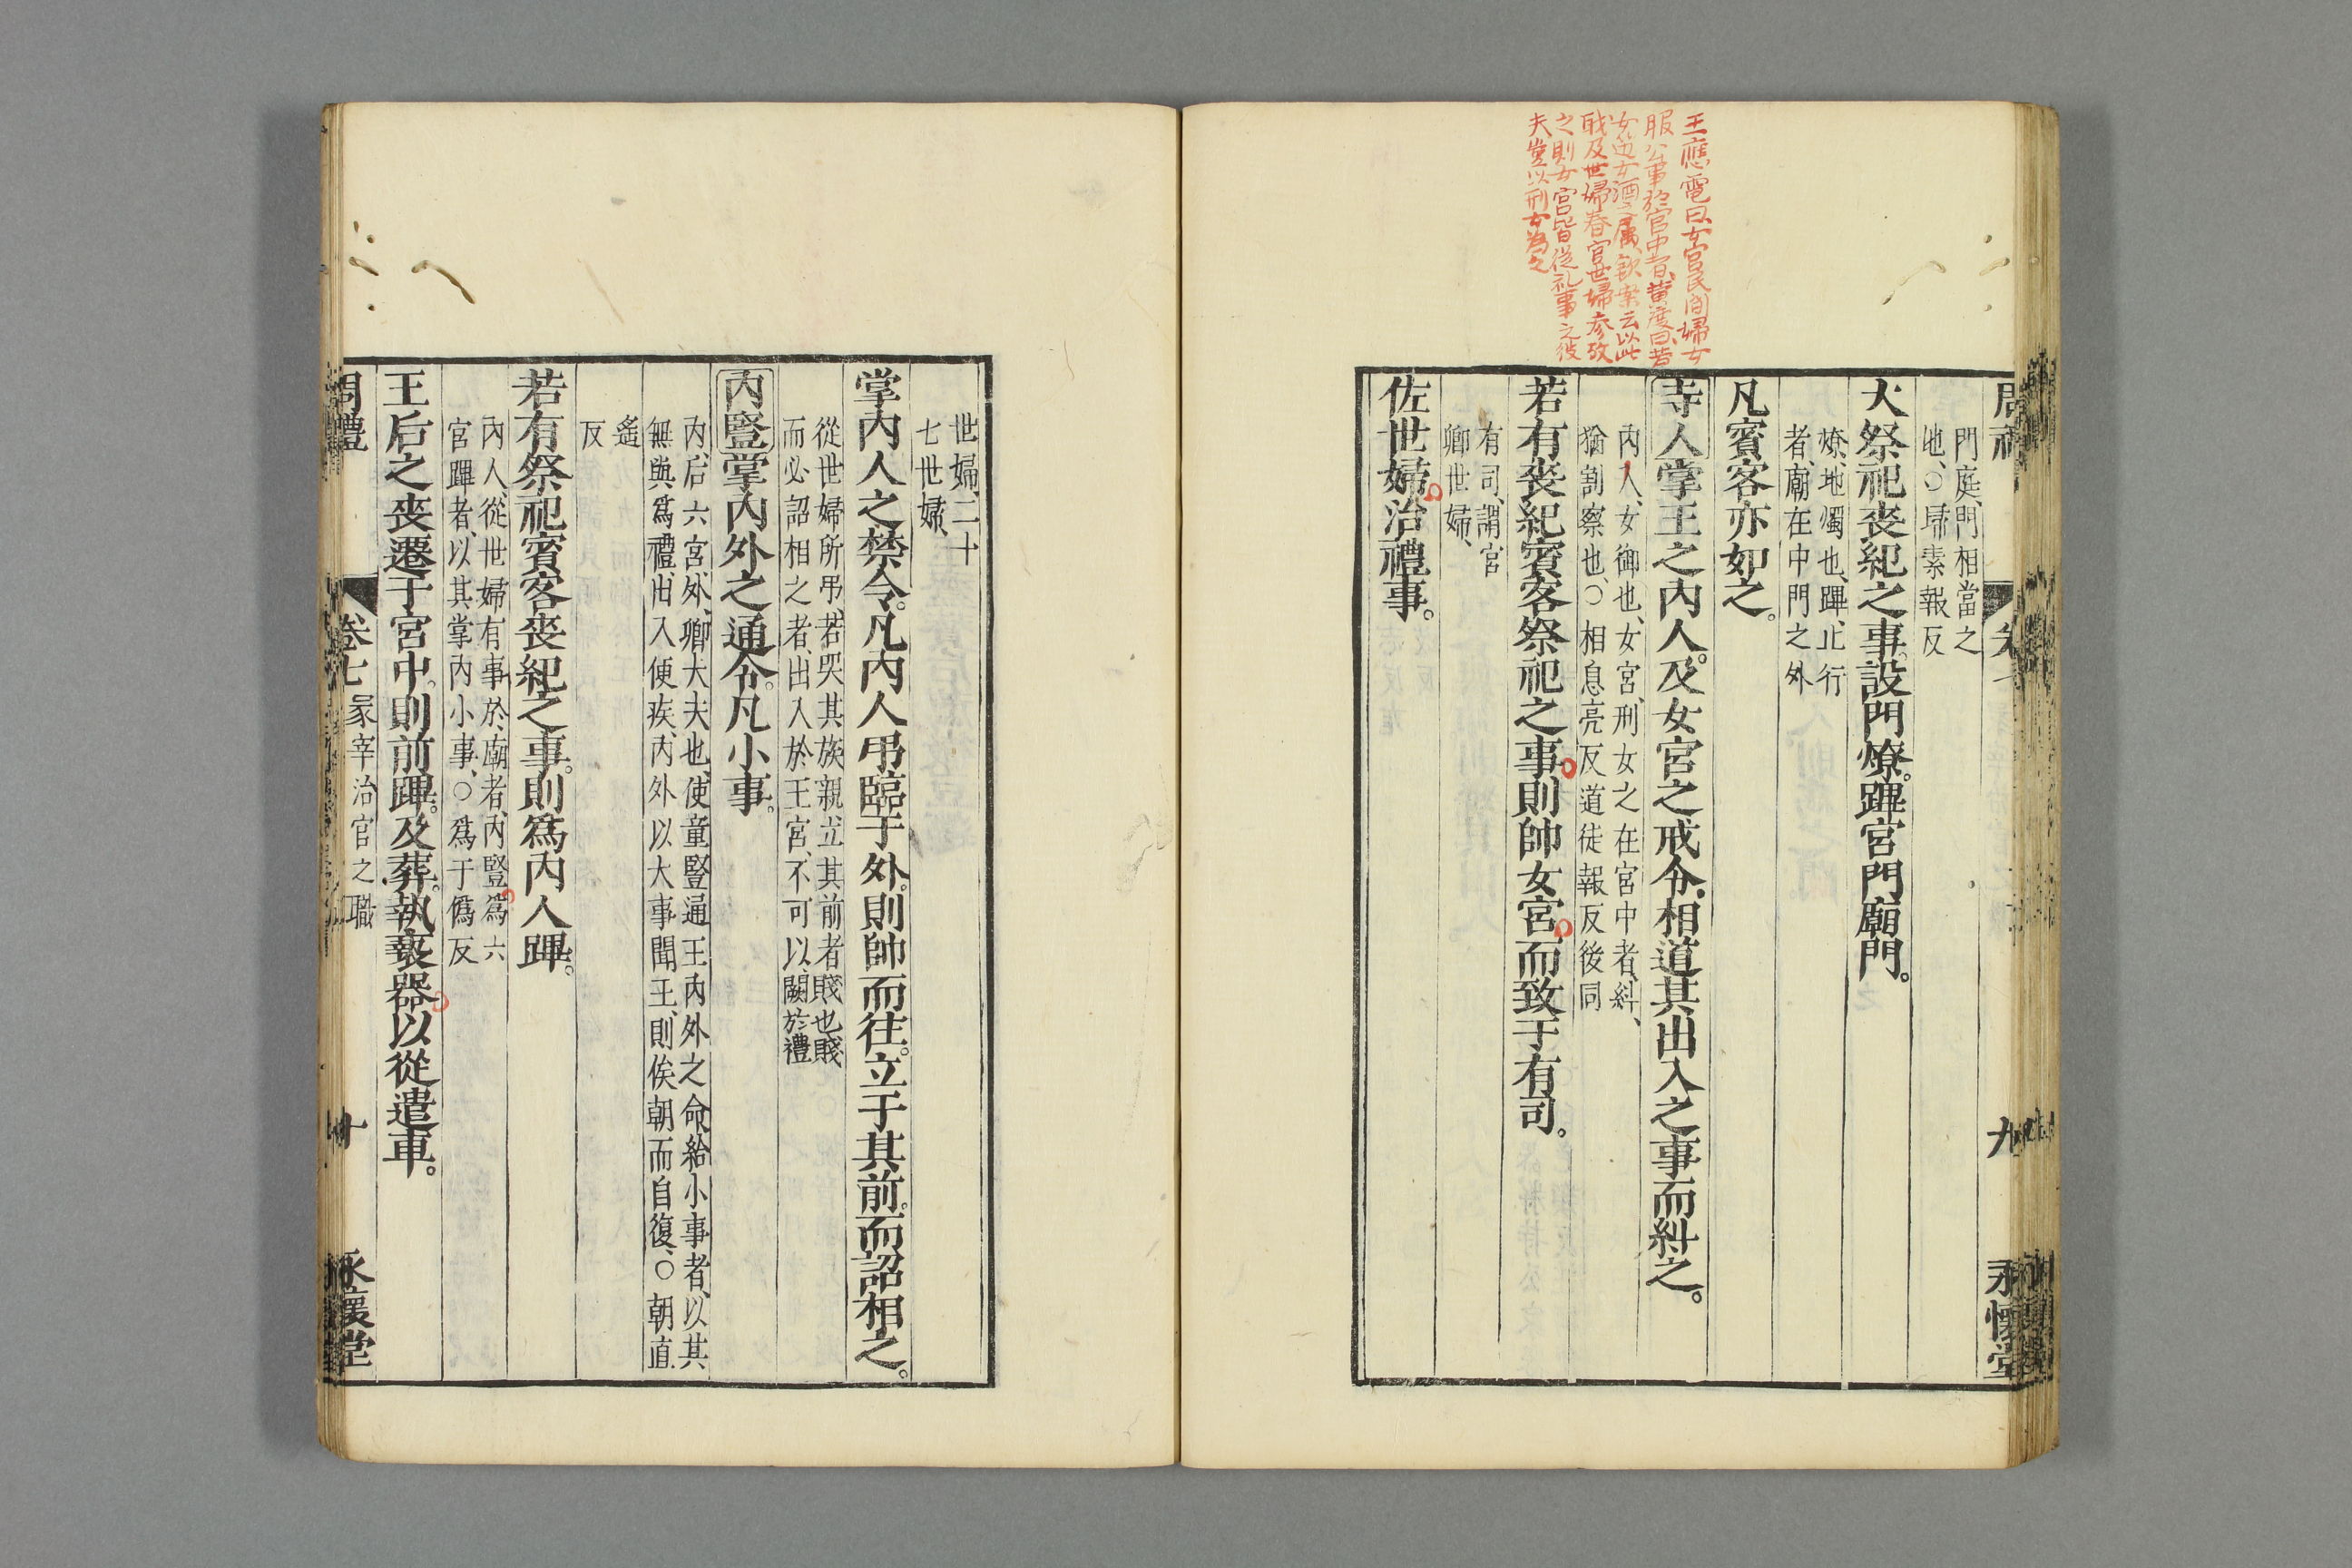 王應電曰女官民間婦女
服公事於官中者黃度曰昔
女巡女酒之屬欽案云以此
戝及世婦春官世婦參攷
之則女宮皆從礼事之彼
夫堂以刑女為之
門庭、門相當之
地、〇埽素報反
大祭祀喪紀之事。設門燎。蹕宮門廟門。
燎、地燭也、蹕、止行
者、廟在中門之外
凡賓客亦如之。
寺人掌王之內人。及女宮之戒令。相道其出入之事而糾之。
內人、女御也、女宮、刑女之在宮中者、糾、
猶割察也、〇相息亮反道徒報反後同
若有喪紀賓客祭祀之事。則帥女宮。而致于有司。
有司、謂宮
卿世婦、
佐世婦。治禮事。
九
永懷堂
世婦、二十
七世婦、
掌內人之禁令。凡內人弔臨于外。則帥而往。立于其前。而詔相之。
從世婦所弔、若哭其族親、立其前者賤也賤、
而必詔相之者、出入於王宮、不可以闕於禮
內豎掌內外之通令。凡小事。
內、后六宮、外、卿大夫也、使童豎通王內外之命、給小事者、以其
無與爲禮、出入便疾、內外以大事聞王、則俟朝而自復、〇朝直
遙
反
若有祭祀賓客喪紀之事。則爲內人蹕。
內人、從世婦有事於廟者、內豎爲六
宮蹕者、以其掌內小事、〇爲于僞反
王后之喪遷于宮中。則前蹕。及葬。執褻器。以從遣車。
周禮
卷七
冢宰治官之職
十
永懷堂